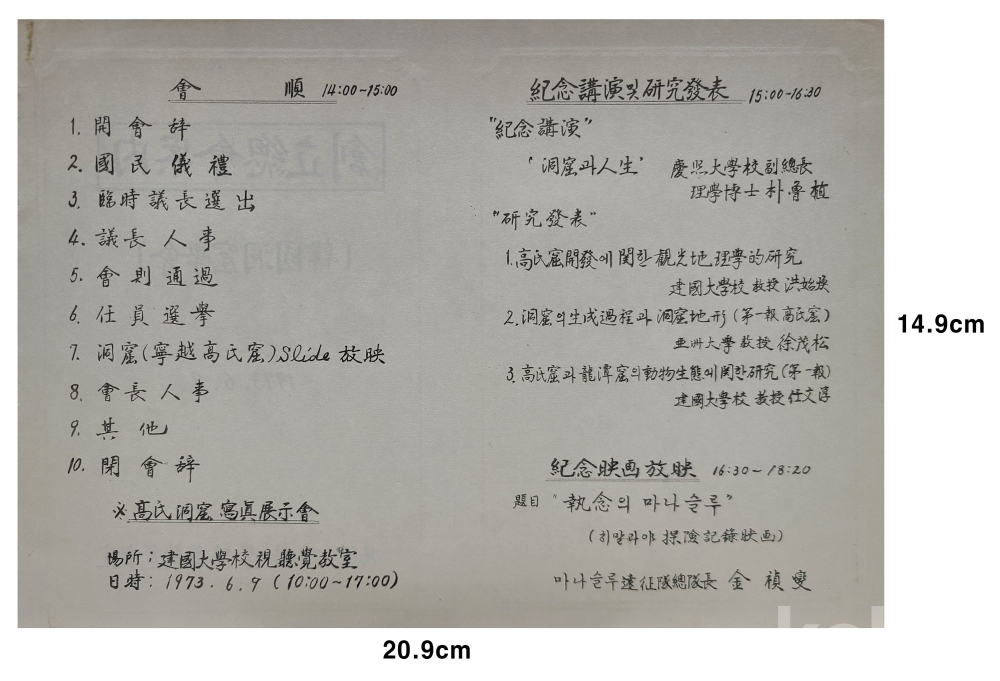 會 順 14:00~15:00
1. 開會辞
2. 國民儀禮
3. 臨時議長選出
4. 議長人事
5. 會則通過
6. 任員選擧
7. 洞窟(寧越高氏窟)Slide 放映
8. 會長人事
9. 其他
10. 閉會辞
※ 高氏洞窟寫眞展示會
場所: 建國大學校視聽覺敎室
日時: 1973. 6. 9 (10:00~17:00)
紀念講演및硏究發表 15:00~16:30
"紀念講演"
'洞窟과人生' 慶熙大學校副總長
理學博士 朴魯植
"硏究發表"
1. 高氏窟開發에関한觀光地理學的硏究
建國大學校 敎授 洪始煥
2. 洞窟의生成過程과 洞窟地形(第一報 高氏窟)
亜洲大學 敎授 徐茂松
3. 高氏窟과龍潭窟의動物生態에関한硏究(第一報)
建國大學校 敎授 任文淳
紀念映画放映 16:30~18:20
題目 "執念의 마나슬루"
(히말라야 探險記錄映画)
마나슬루遠征隊總隊長 金禎燮
14.9cm
20.9cm